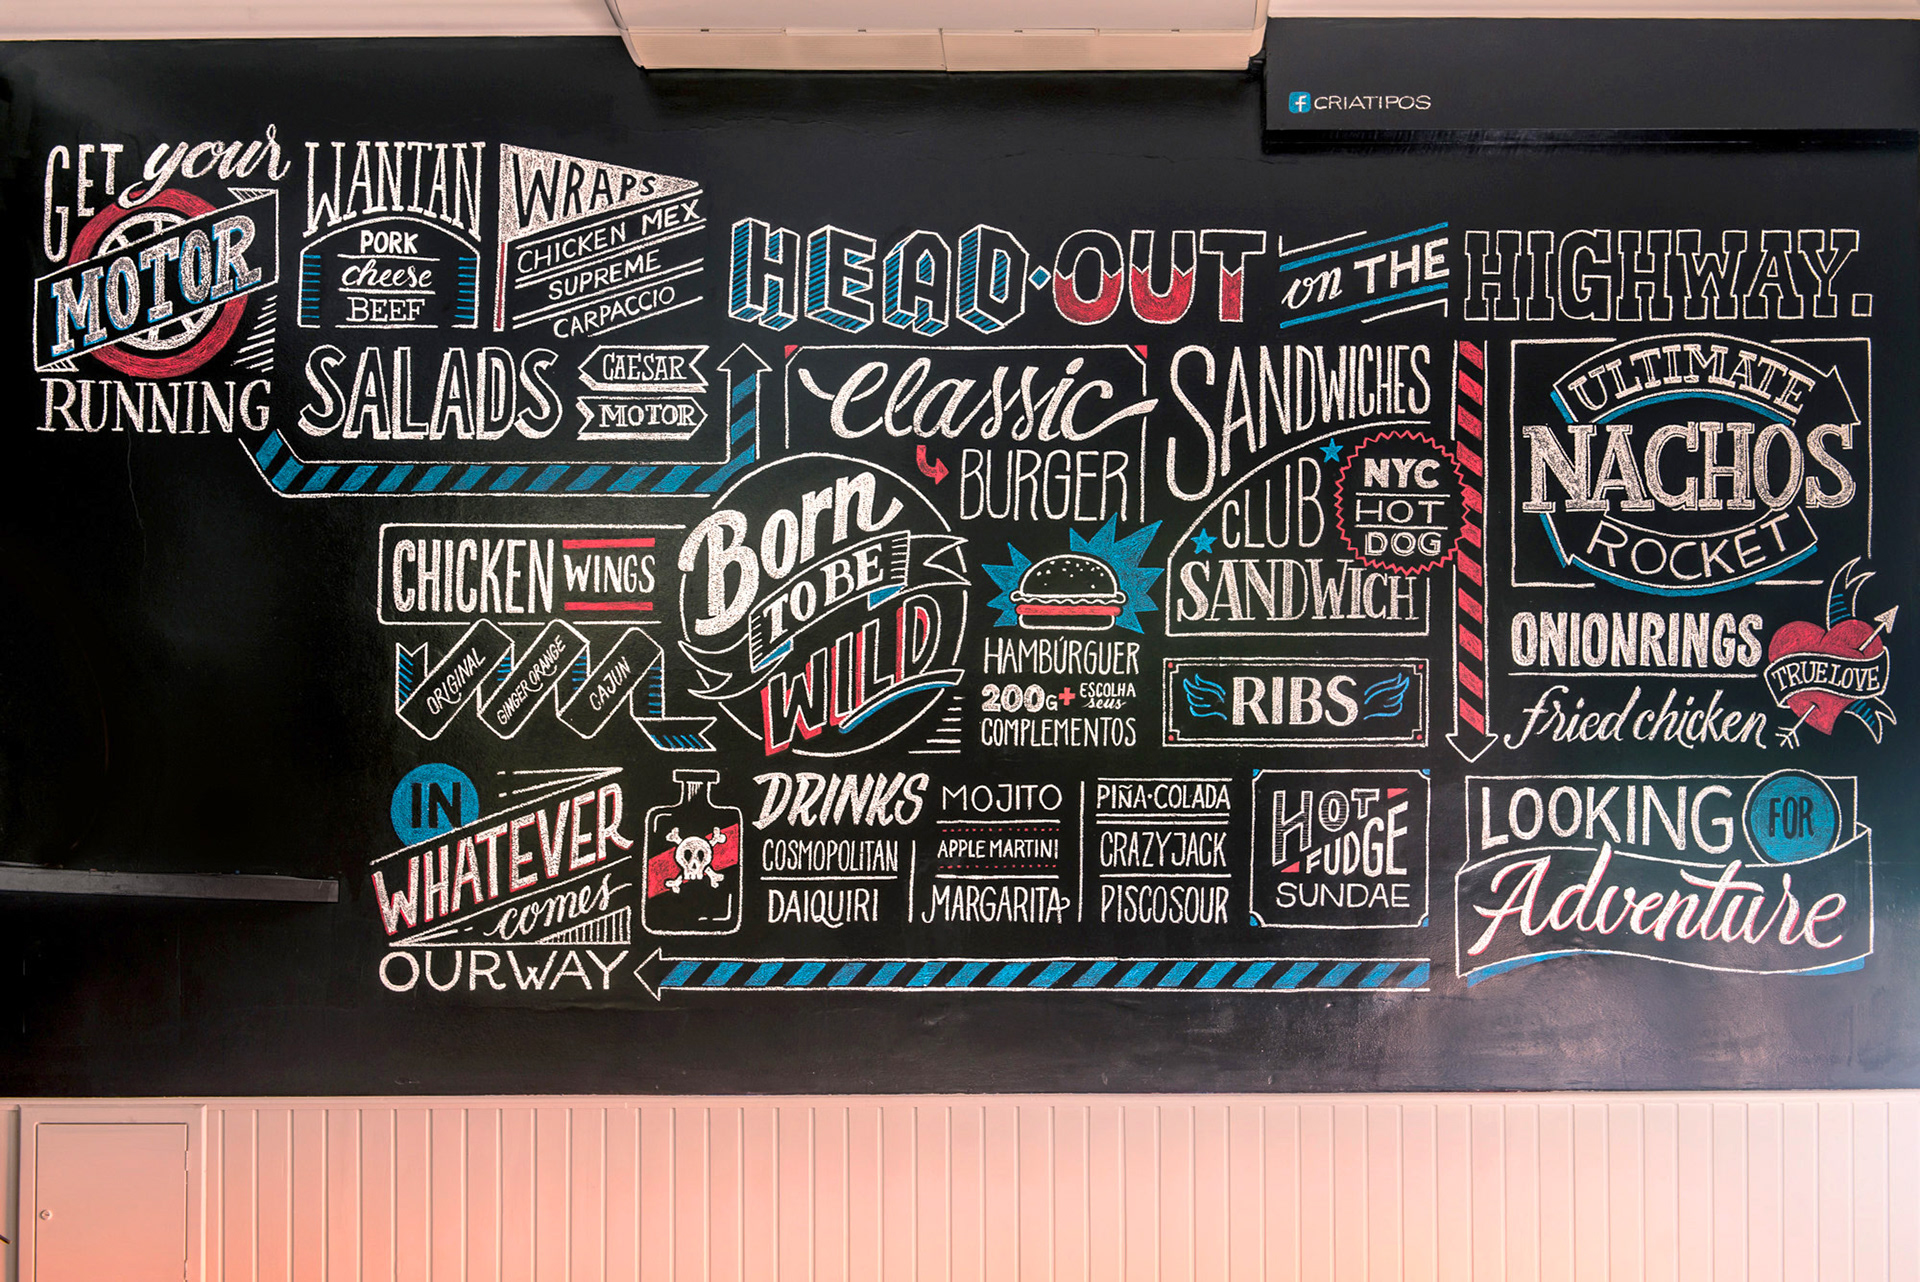 CRIATIPOS
GET your
MOTOR
RUNNING
WANTAN
PORK
cheese
BEEF
WRAPS
CHICKEN MEX
SUPREME
CARPACCIO
SALADS
CAESAR
MOTOR
HEAD·OUT on THE HIGHWAY.
classic
BURGER
SANDWICHES
CLUB
SANDWICH
NYC
HOT
DOG
ULTIMATE
NACHOS
ROCKET
CHICKEN WINGS
ORIGINAL
GINGER ORANGE
CAJUN
Born
TO BE
WILD
HAMBÚRGUER
200G+ ESCOLHA
seus
COMPLEMENTOS
RIBS
ONIONRINGS
fried chicken
TRUE LOVE
IN
WHATEVER
comes
OURWAY
DRINKS
COSMOPOLITAN
DAIQUIRI
MOJITO
APPLE MARTINI
MARGARITA
PIÑA·COLADA
CRAZYJACK
PISCOSOUR
HOT
FUDGE
SUNDAE
LOOKING FOR
Adventure